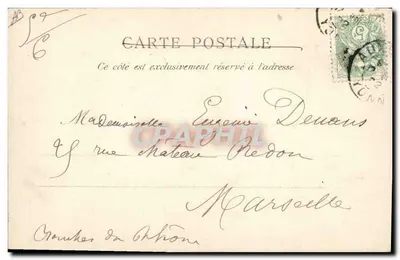 CARTE POSTALE
Ce côté est exclusivement réservé à l'adresse
Mademoiselle Eugénie Denans
rue Mateau Redon
Marseille
Bouches du Rhône